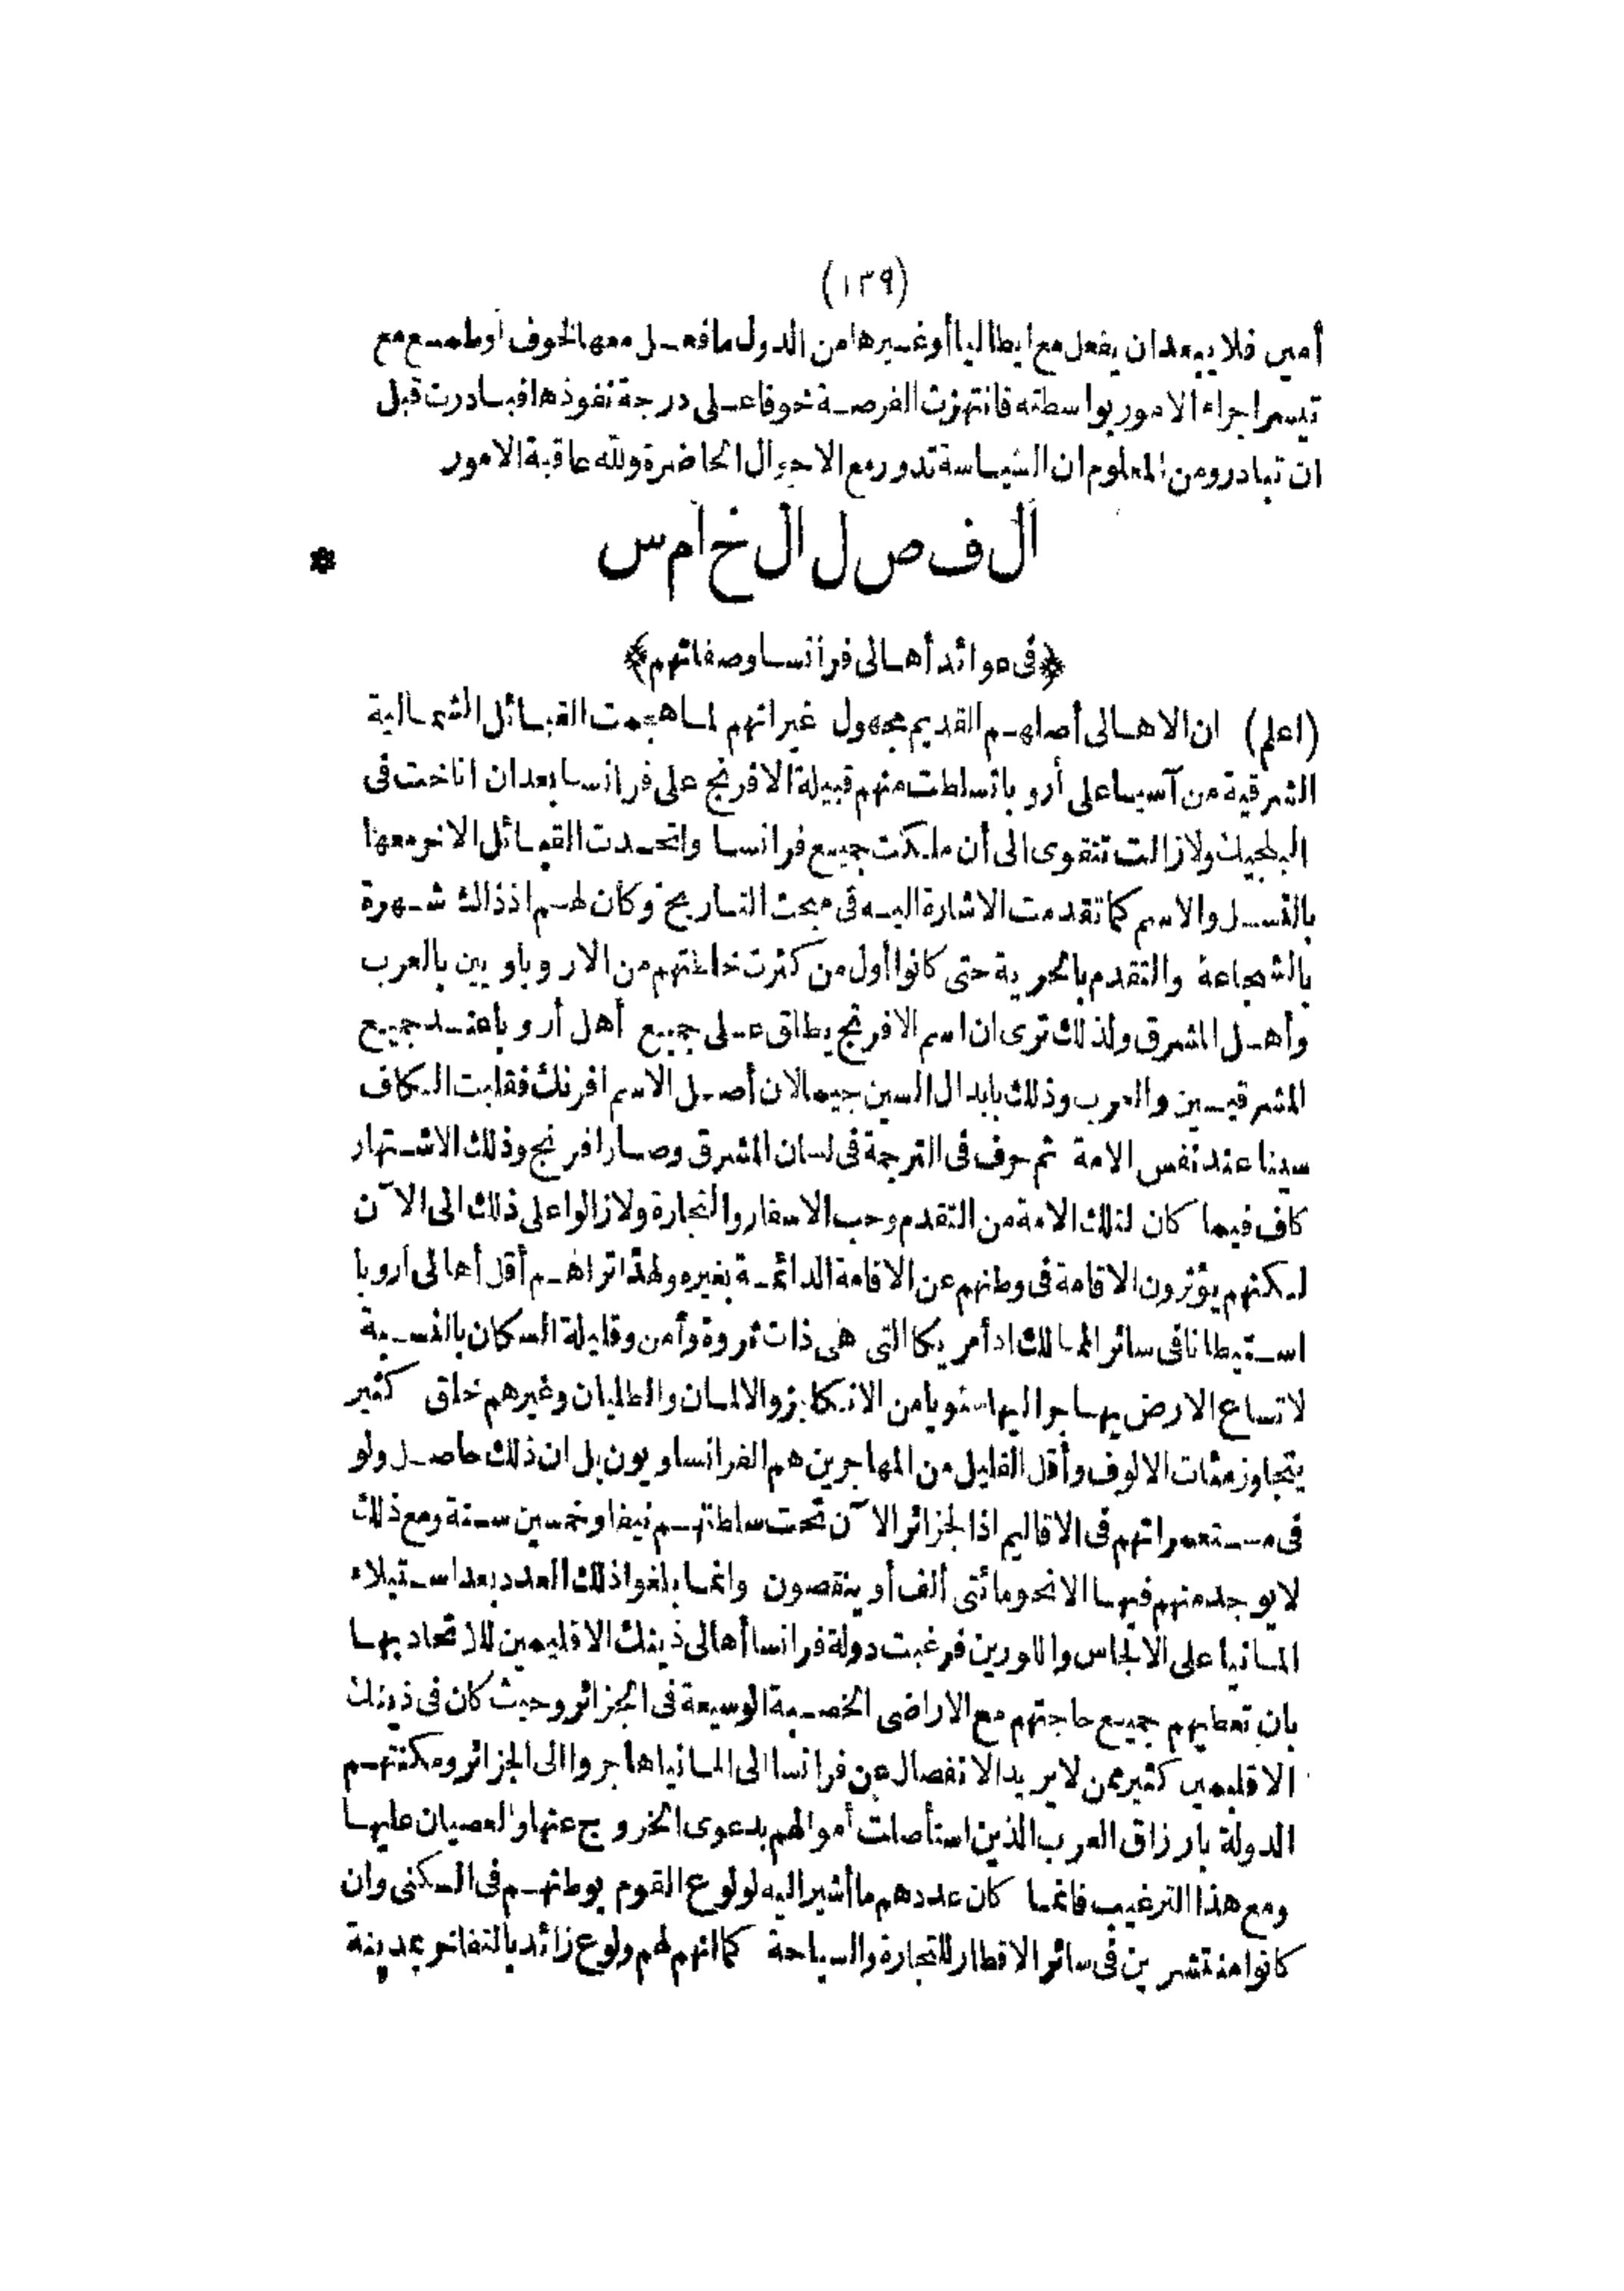 (١٣٩)
أمين فلا يبعد ان يفعل مع ايطاليا أو غيرها من الدول ما فعل معها لخوف أو طمع مع
تيسر اجراء الامور بواسطته فانتهزت الفرصة خوفا على درجة نفوذها فبادرت قبل
ان تبادر ومن المعلوم ان السياسة تدور مع الاحوال الحاضرة ولله عاقبة الامور
الفصل الخامس *
﴿فى عوائد أهالى فرانسا وصفاتهم﴾
(اعلم) ان الاهالى أصلهم القديم مجهول غير انهم لما هجمت القبائل الشمالية
الشرقية من آسيا على أروبا تسلطت منهم قبيلة الافرنج على فرانسا بعد ان اناخت فى
البلجيك ولا زالت تتقوى الى أن ملكت جميع فرانسا واتحدت القبائل الاخر معها
بالنسل والاسم كما تقدمت الاشارة اليه فى مبحث التاريخ وكان لهم اذ ذاك شهرة
بالشجاعة والتقدم بالحرية حتى كانوا أول من كثرت خلطتهم من الاروباويين بالعرب
وأهل المشرق ولذلك ترى ان اسم الافرنج يطلق على جميع أهل أروبا عند جميع
المشرقيين والعرب وذلك بابدال السين جيما لان أصل الاسم افرنك فقلبت الكاف
سينا عند نفس الامة ثم حرف فى الترجمة فى لسان المشرق وصار افرنج وذلك الاشتهار
كاف فيما كان لتلك الامة من التقدم وحب الاسفار والتجارة ولا زالوا على ذلك الى الآن
لكنهم يؤثرون الاقامة فى وطنهم عن الاقامة الدائمة بغيره ولهذا تراهم أقل أهالى أروبا
استيطانا فى سائر الممالك اذ أمريكا التى هى ذات ثروة وأمن وقليلة السكان بالنسبة
لاتساع الارض يهاجر اليها سنويا من الانكليز والالمان والطليان وغيرهم خلق كثير
يتجاوز مئات الالوف وأقل القليل من المهاجرين هم الفرانساويون بل ان ذلك حاصل ولو
فى مستعمراتهم فى الاقاليم اذ الجزائر الآن تحت سلطتهم نيفا وخمسين سنة ومع ذلك
لا يوجد منهم فيها الا نحو مائتى ألف أو ينقصون وانما بلغوا ذلك العدد بعد استيلاء
المانيا على الالجاس واللورين فرغبت دولة فرانسا أهالى ذينك الاقليمين للاتحاد بها
بان تعطيهم جميع حاجتهم مع الاراضى الخصبة الوسيعة فى الجزائر وحيث كان فى ذينك
الاقليمين كثير ممن لا يريد الانفصال عن فرانسا الى المانيا هاجروا الى الجزائر ومكنتهم
الدولة بارزاق العرب الذين استأصلت أموالهم بدعوى الخروج عنها والعصيان عليها
ومع هذا الترغيب فانما كان عددهم ما أشير اليه لولوع القوم بوطنهم فى السكنى وان
كانوا منتشرين فى سائر الاقطار للتجارة والسياحة كما انهم لهم ولوع زائد بالتفاخر بمدينة